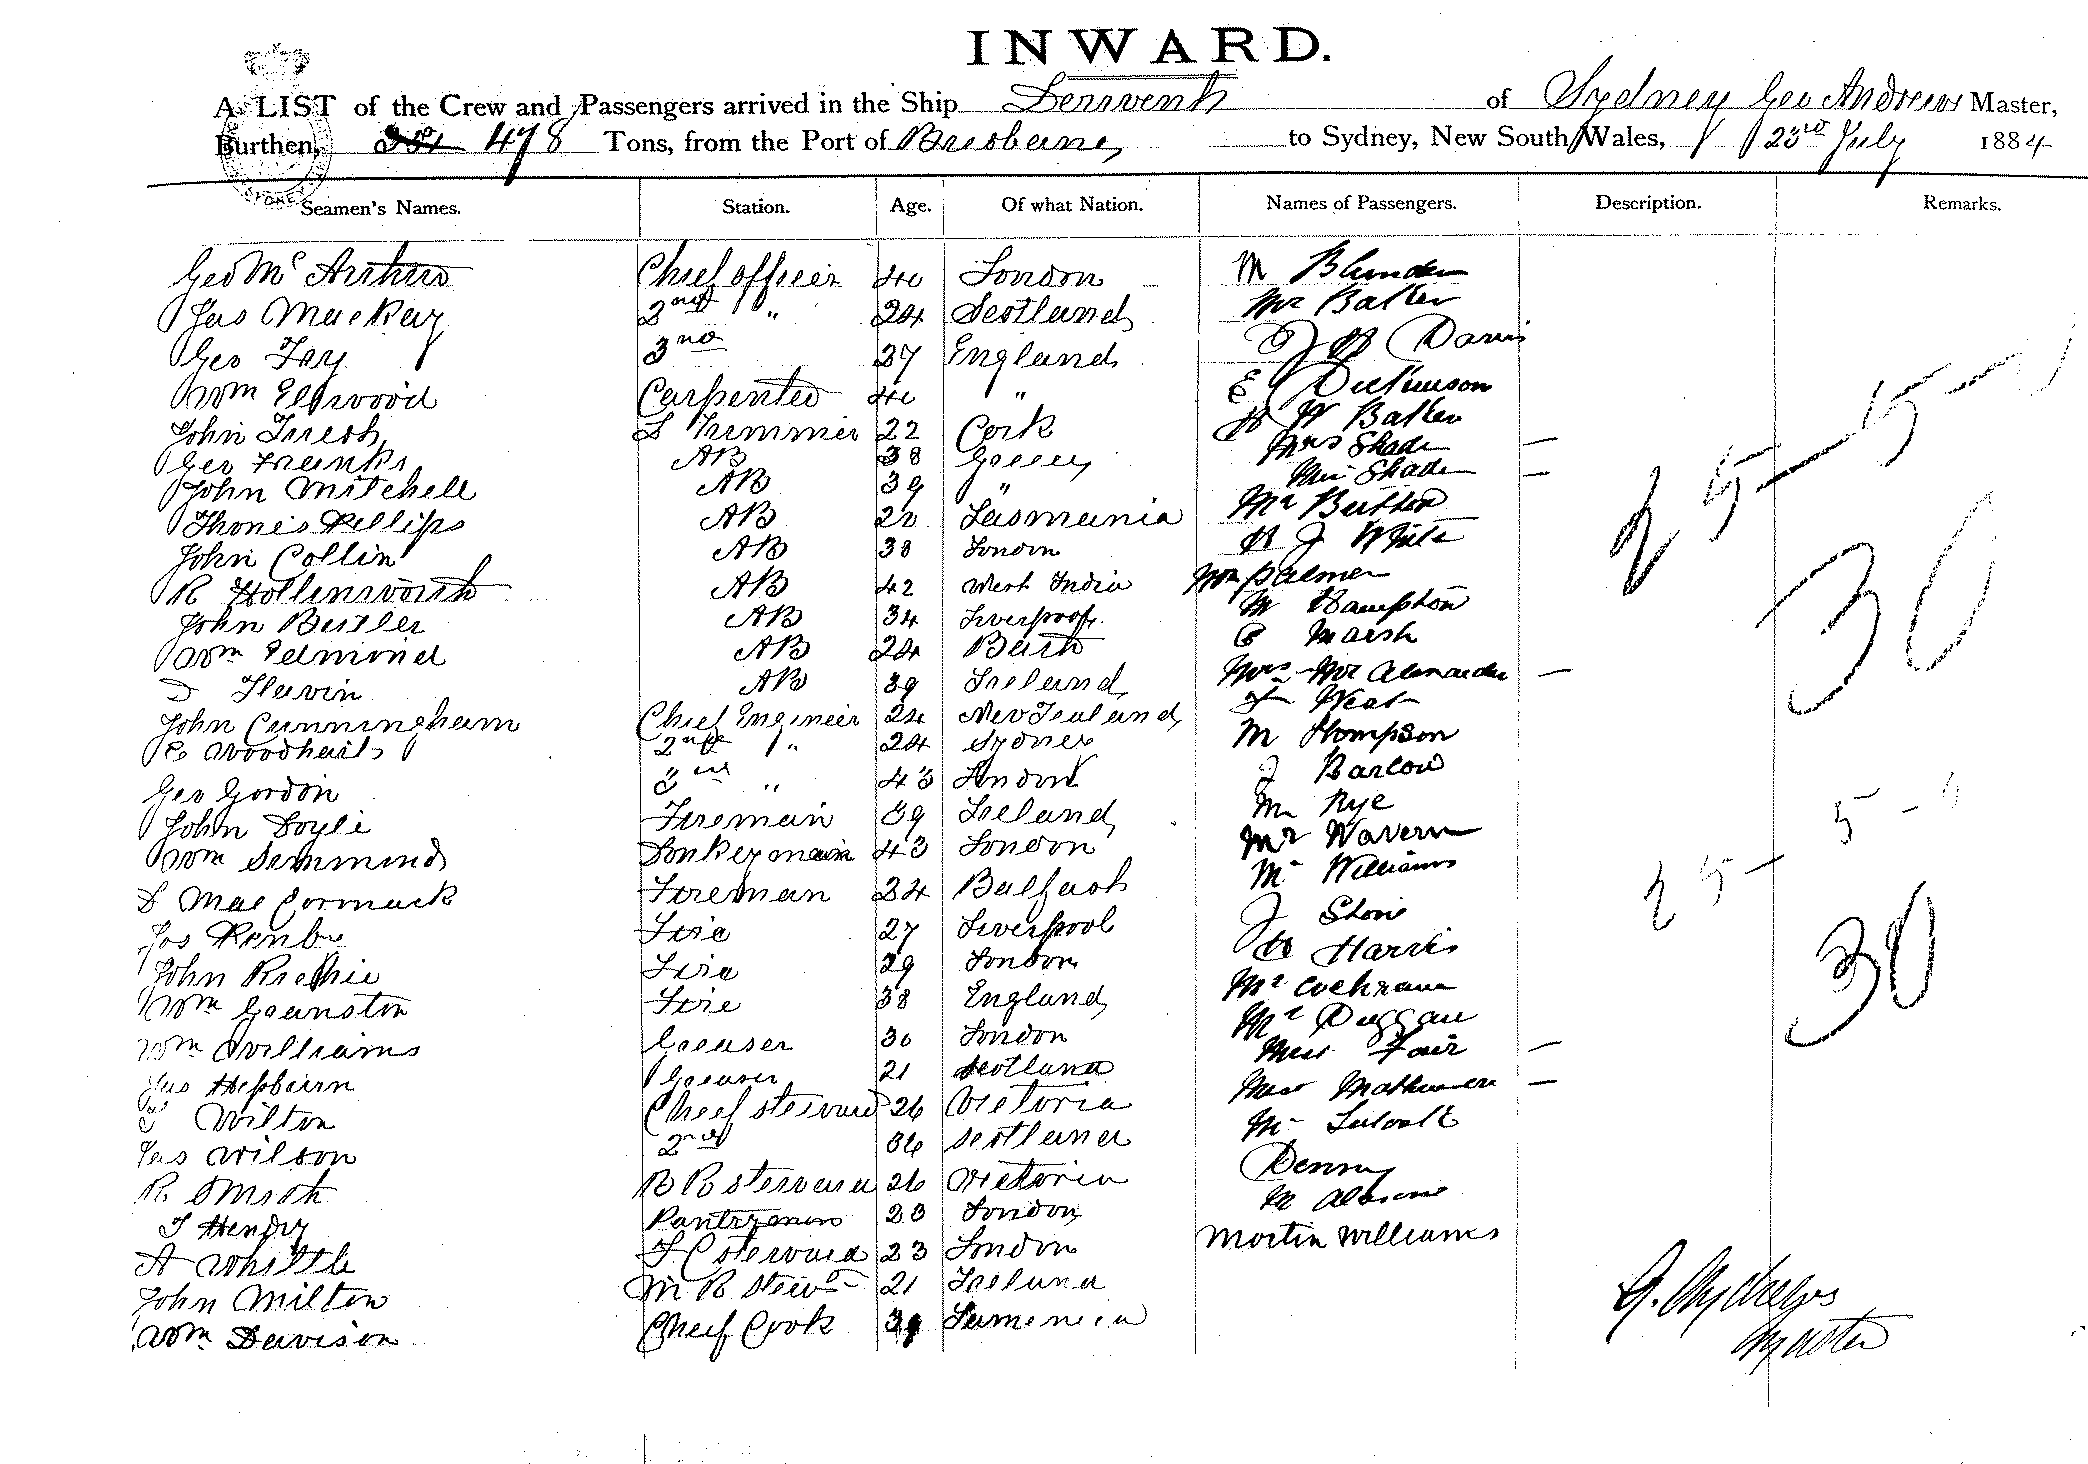 INWARD.
A LIST of the Crew and Passengers arrived in the Ship Derwent of Sydney Geo Andrews Master,
Burthen, 478 Tons, from the Port of Brisbane to Sydney, New South Wales, 23rd July 1884
Seamen's Names. Station. Age. Of what Nation. Names of Passengers. Description. Remarks.
Geo Mc Arthur Chief officer 40 London M Blunden
Jas MacKay 2nd " 24 Scotland Mr Balker
Geo Fay 3rd 37 England Davis
Wm Ellwood Carpenter 40 " E Dickinson
John Trimmer 22 Cork W Balker
Geo Franks AB 38 Mrs Shade —
John Mitchell AB 39 " Miss Shade —
Phillips AB 22 Tasmania Mr Button
John Collin AB 38 London J White
R Hollinsworth AB 42 West India Wm Palmer
John Butler AB 34 Liverpool M Hampton
Wm Edmond AB 24 Bath C Marsh
D Flavin AB 39 Ireland Mrs Alexander —
John Cunningham Chief Engineer 24 New Zealand West
Woodhead 2nd " 24 Sydney M Thompson
Geo Gordon 3rd " 43 London J Barlow
John Doyle Fireman 39 Ireland M Rye
Wm Simmonds Donkeyman 43 London Mr Wavern
D MacCormack Fireman 24 Balfast Mr Williams
Jos Fire 27 Liverpool J Stone
John Ritchie Fire 29 London Harris
Wm Fire 38 England Mr Cochrane
Wm Williams Greaser 30 London Mr Duggan
Jas Hepburn Greaser 21 Scotland Miss Fair —
Wilton Chief Steward 26 Victoria Miss —
Jas Wilson 2nd 36 Scotland Mr
R Smith B R Steward 26 Victoria Denny
T Hendry Pantryman 23 London M
A Whittle F C Steward 23 London Martin Williams
John Milton M R Stewd 21 Ireland
Wm Davison Cheif Cook 39
25 — 5 —
30
5 —
25 —
30
G. Andrews
Master